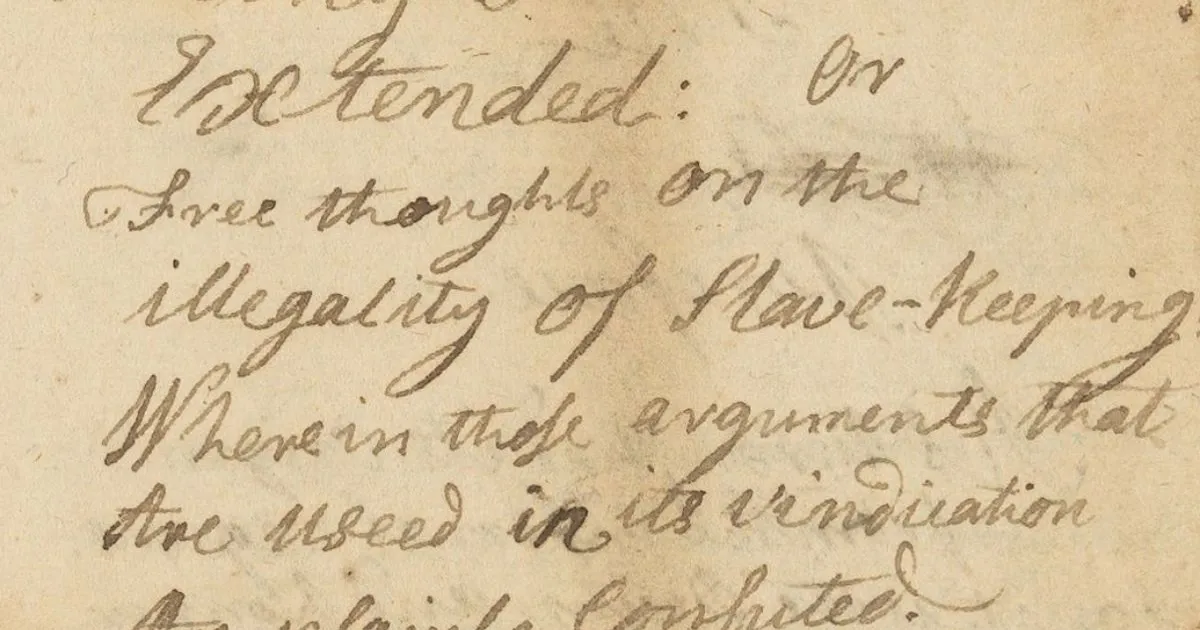 Extended: Or
Free thoughts on the
illegality of Slave-keeping
Wherein those arguments that
Are useed in its vindication
Are plainly Confuted.